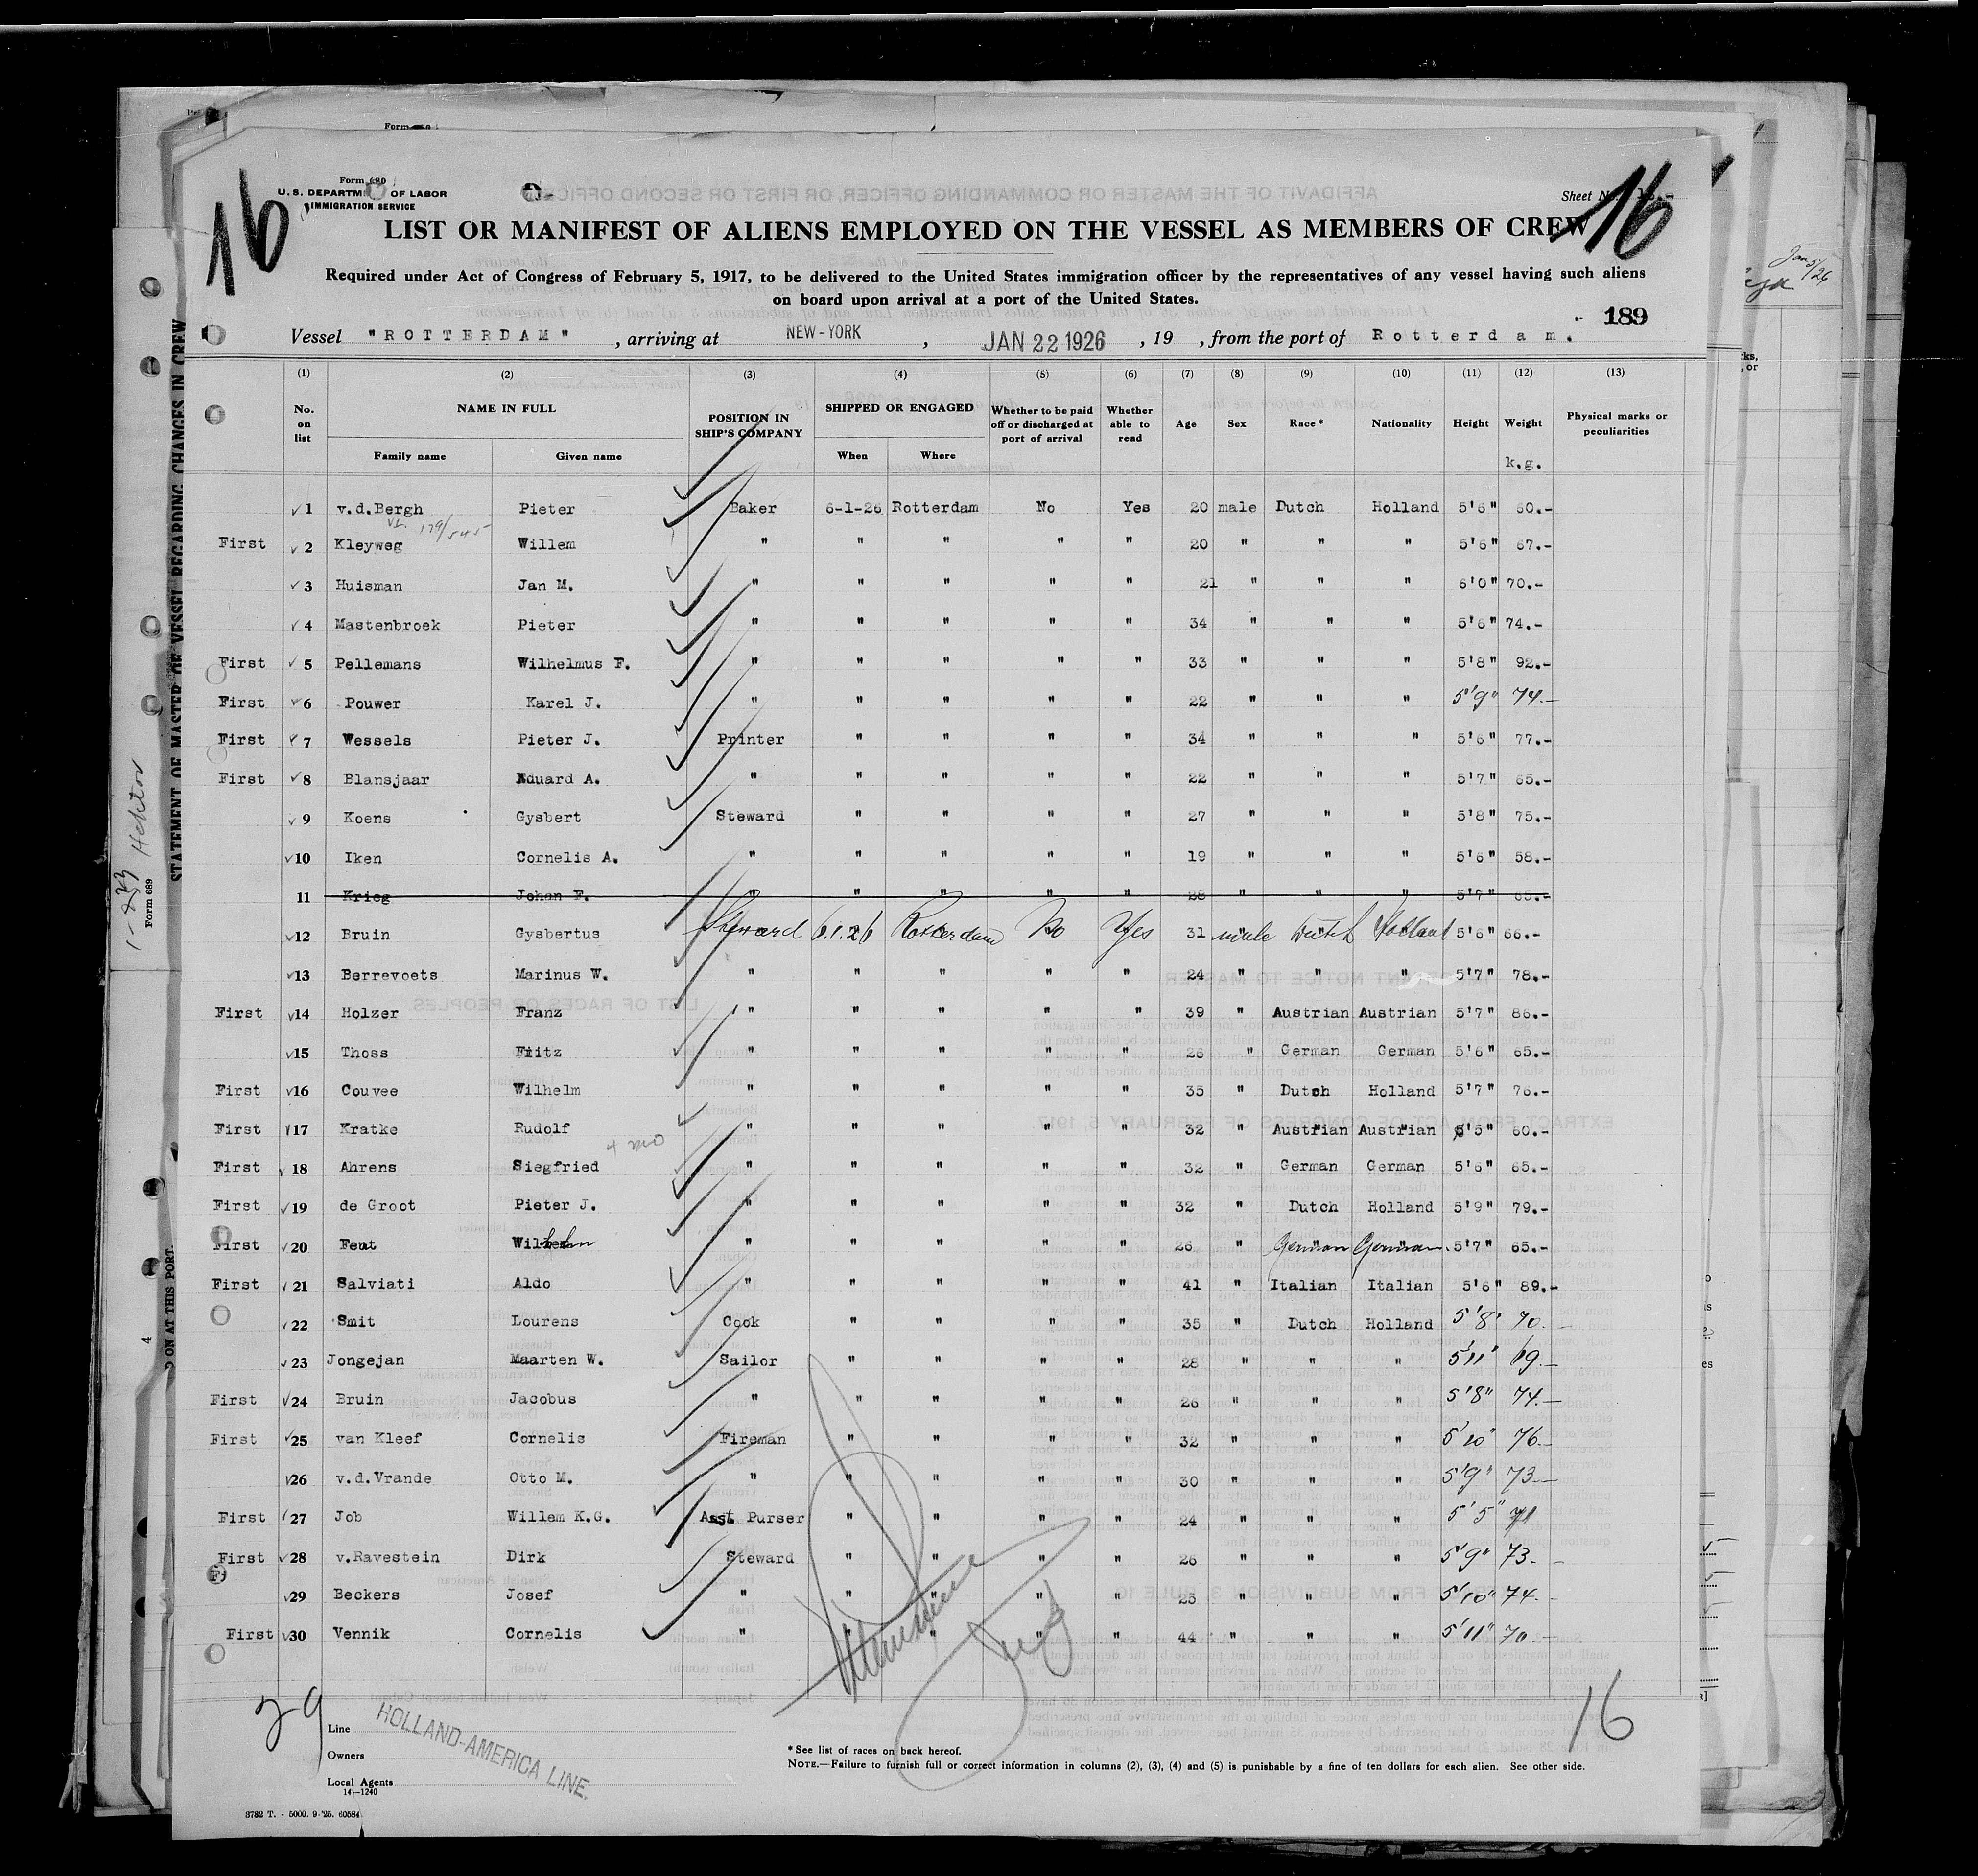 Form 680
U. S. DEPARTMENT OF LABOR
IMMIGRATION SERVICE
16
Sheet No.
16
LIST OR MANIFEST OF ALIENS EMPLOYED ON THE VESSEL AS MEMBERS OF CREW
Required under Act of Congress of February 5, 1917, to be delivered to the United States immigration officer by the representatives of any vessel having such aliens
on board upon arrival at a port of the United States.
189
Vessel "ROTTERDAM", arriving at NEW-YORK, JAN 22 1926, 19 , from the port of Rotterdam.
(1) (2) (3) (4) (5) (6) (7) (8) (9) (10) (11) (12) (13)
No. on list NAME IN FULL Family name Given name POSITION IN SHIP'S COMPANY SHIPPED OR ENGAGED When Where Whether to be paid off or discharged at port of arrival Whether able to read Age Sex Race* Nationality Height Weight Physical marks or peculiarities
k.g.
1 v.d.Bergh Pieter Baker 6-1-26 Rotterdam No Yes 20 male Dutch Holland 5'6" 60.-
179/545
First 2 Kleyweg Willem " " " " " 20 " " " 5'6" 67.-
3 Huisman Jan M. " " " " " 21 " " " 6'0" 70.-
4 Mastenbroek Pieter " " " " " 34 " " " 5'6" 74.-
First 5 Pellemans Wilhelmus F. " " " " " 33 " " " 5'8" 92.-
First 6 Pouwer Karel J. " " " " " 22 " " " 5'9" 74.-
First 7 Wessels Pieter J. Printer " " " " 34 " " " 5'6" 77.-
First 8 Blansjaar Eduard A. " " " " " 22 " " " 5'7" 65.-
9 Koens Gysbert Steward " " " " 27 " " " 5'8" 75.-
10 Iken Cornelis A. " " " " " 19 " " " 5'6" 58.-
11 Krieg Johan F. " " " " " 28 " " " 5'7" 65.-
12 Bruin Gysbertus Steward 6.1.26 Rotterdam No Yes 31 male Dutch Holland 5'6" 66.-
13 Berrevoets Marinus W. " " " " " 24 " " " 5'7" 78.-
First 14 Holzer Franz " " " " " 39 " Austrian Austrian 5'7" 86.-
15 Thoss Fritz " " " " " 26 " German German 5'6" 65.-
First 16 Couvee Wilhelm " " " " " 35 " Dutch Holland 5'7" 76.-
First 17 Kratke Rudolf " " " " " 32 " Austrian Austrian 5'5" 60.-
4 mo
First 18 Ahrens Siegfried " " " " " 32 " German German 5'6" 65.-
First 19 de Groot Pieter J. " " " " " 32 " Dutch Holland 5'9" 79.-
First 20 Feut Wilhelm " " " " " 26 " German German 5'7" 65.-
First 21 Salviati Aldo " " " " " 41 " Italian Italian 5'6" 89.-
22 Smit Lourens Cook " " " " 35 " Dutch Holland 5'8" 70.-
23 Jongejan Maarten W. Sailor " " " " 28 " " " 5'11" 69.-
First 24 Bruin Jacobus " " " " " 26 " " " 5'8" 74.-
First 25 van Kleef Cornelis Fireman " " " " 32 " " " 5'10" 76.-
26 v.d.Vrande Otto M. " " " " " 30 " " " 5'9" 73.-
First 27 Job Willem K.G. Asst. Purser " " " " 24 " " " 5'5" 71
First 28 v.Ravestein Dirk Steward " " " " 26 " " " 5'9" 73.-
29 Beckers Josef " " " " " 25 " " " 5'10" 74.-
First 30 Vennik Cornelis " " " " " 44 " " " 5'11" 70.-
29
16
Line HOLLAND-AMERICA LINE.
Owners
Local Agents
14—1240
*See list of races on back hereof.
NOTE.—Failure to furnish full or correct information in columns (2), (3), (4) and (5) is punishable by a fine of ten dollars for each alien. See other side.
3782 T. - 5000. 9-'25. 60584
STATEMENT OF MASTER OF VESSEL REGARDING CHANGES IN CREW
Form 689
ON AT THIS PORT.